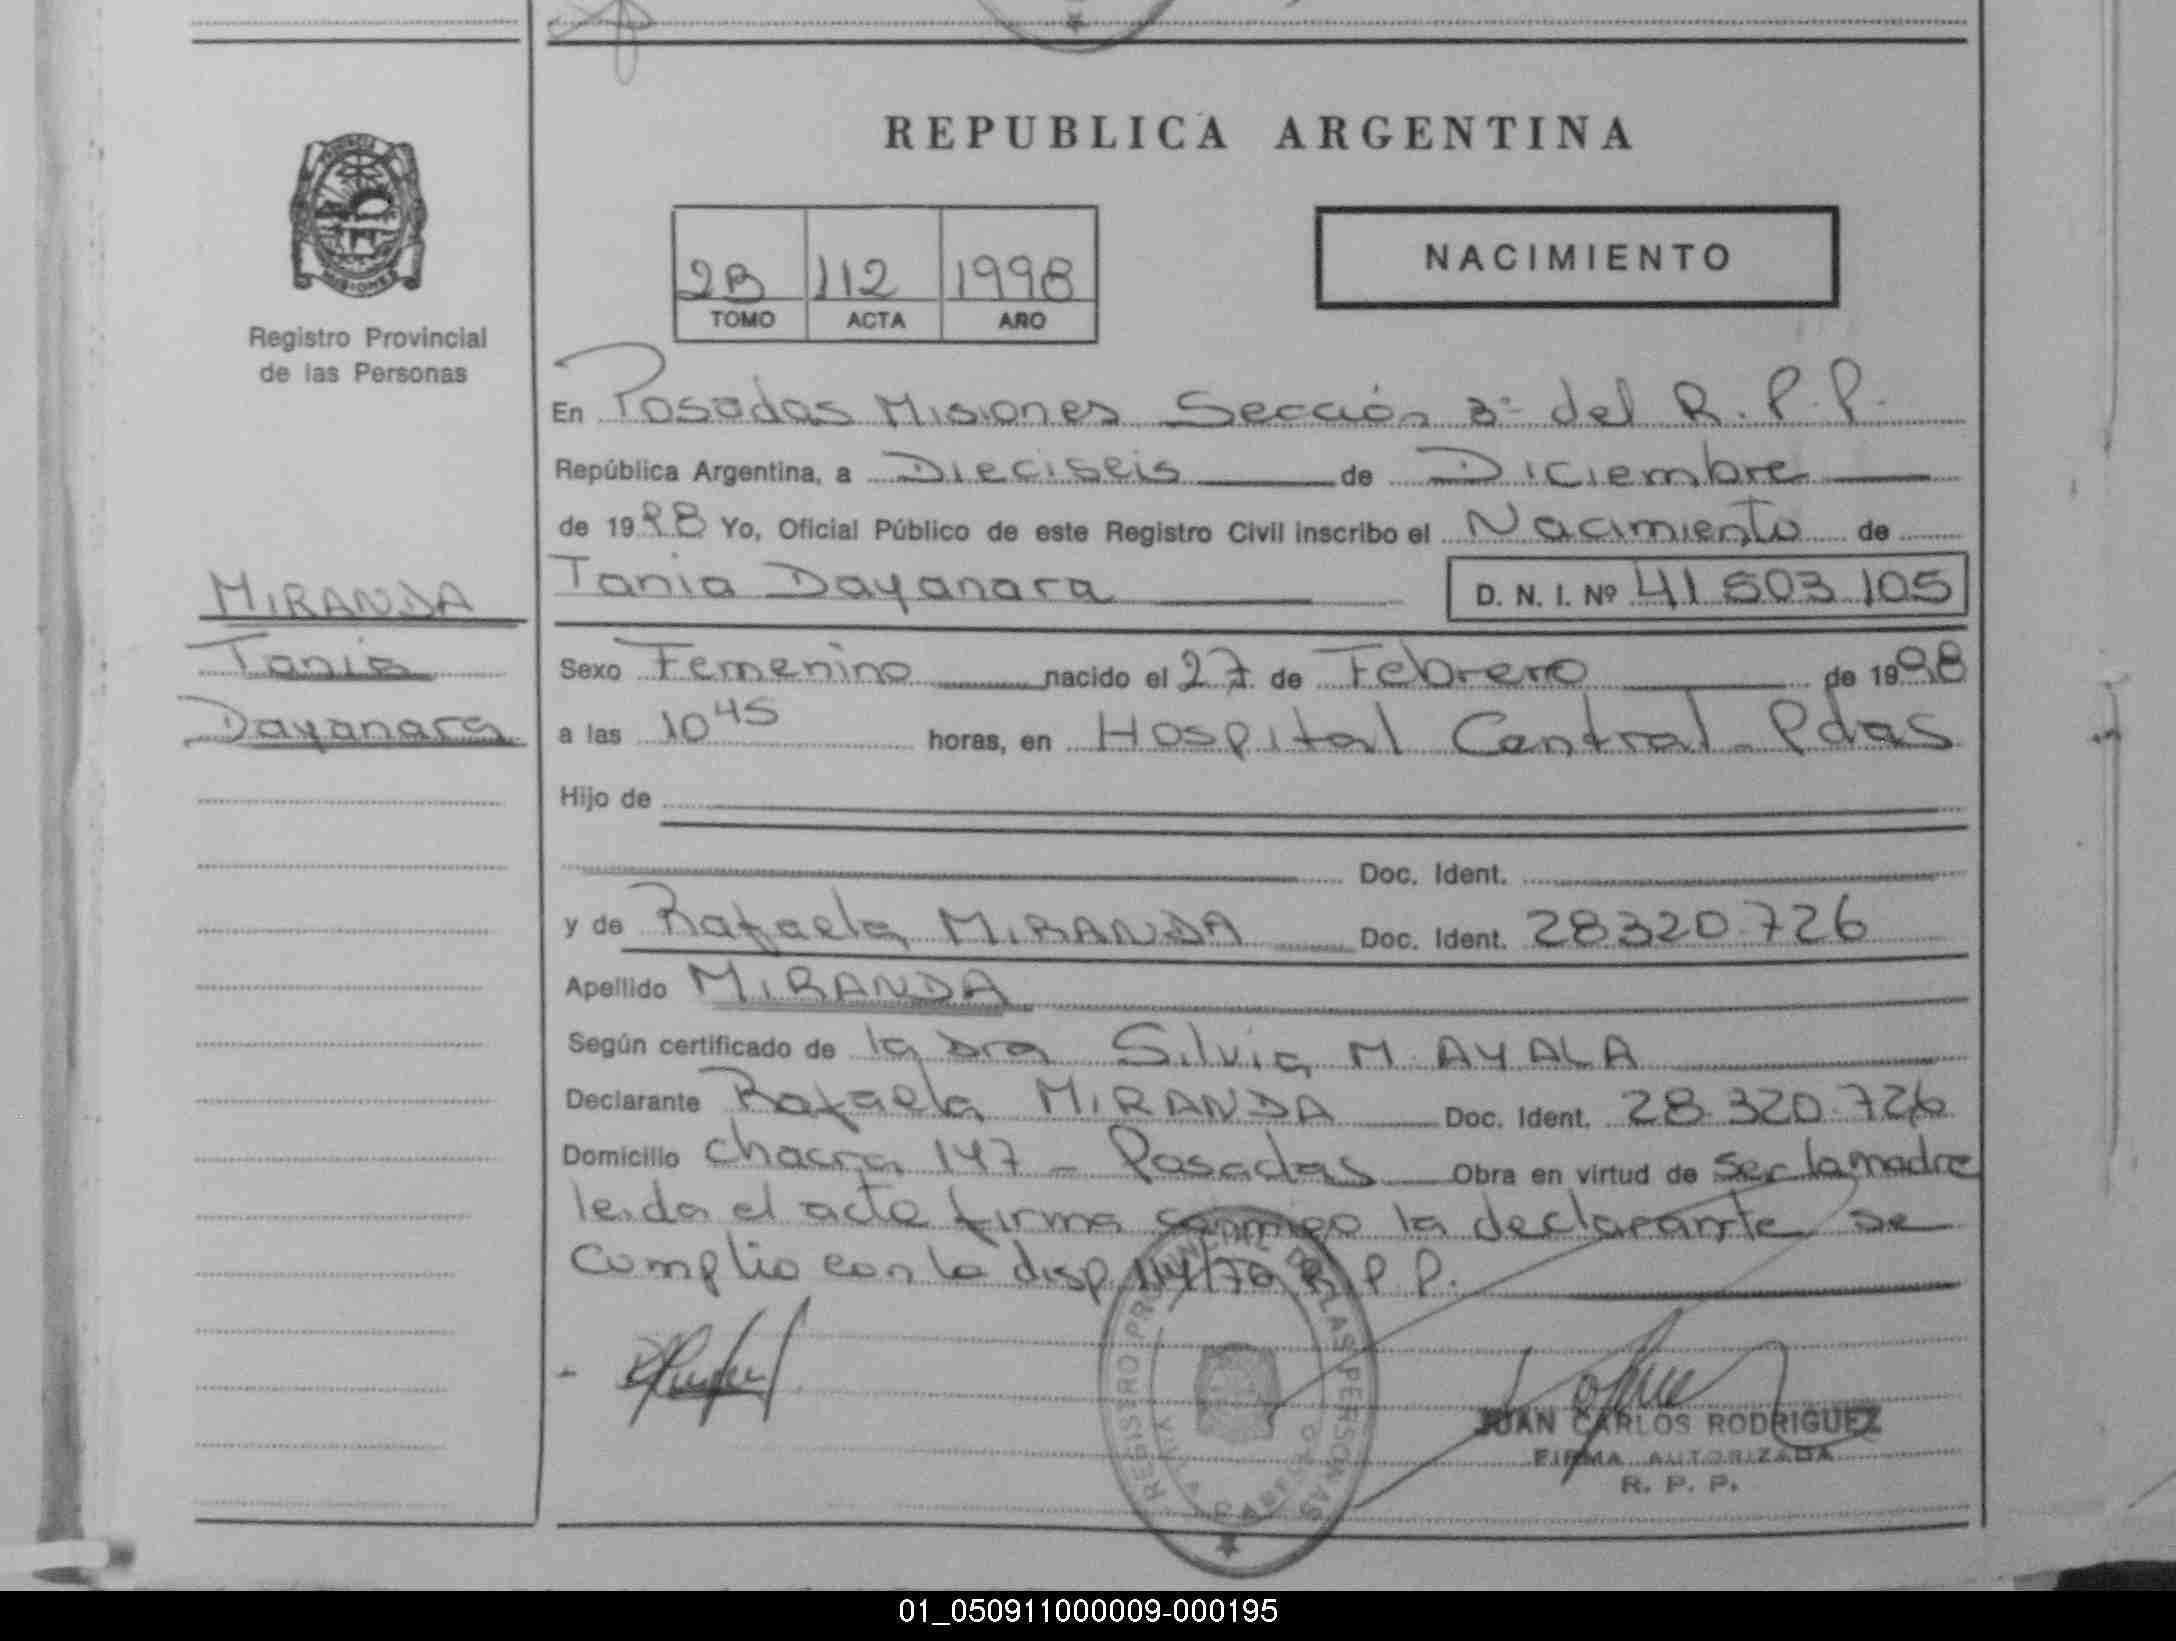 REPUBLICA ARGENTINA
NACIMIENTO
2B 112 1998
TOMO ACTA AÑO
MISIONES
Registro Provincial
de las Personas
En Posadas Misiones Sección 3º del R.P.P.
República Argentina, a Dieciseis de Diciembre
de 1998 Yo, Oficial Público de este Registro Civil inscribo el Nacimiento de
Tania Dayanara D. N. I. Nº 41 503 105
MIRANDA
Tania
Dayanara
Sexo Femenino nacido el 27 de Febrero de 1998
a las 10 45 horas, en Hospital Central - Pdas
Hijo de
Doc. Ident.
y de Rafaela MIRANDA Doc. Ident. 28320.726
Apellido MIRANDA
Según certificado de la Dra Silvia M. AYALA
Declarante Rafaela MIRANDA Doc. Ident. 28.320.726
Domicilio chacra 147 - Posadas Obra en virtud de ser la madre
leida el acta firma conmigo la declarante se
cumplio con la disp. 114/70 R.P.P.
REGISTRO PROVINCIAL DE LAS PERSONAS
JUAN CARLOS RODRIGUEZ
FIRMA AUTORIZADA
R. P. P.
01_050911000009-000195